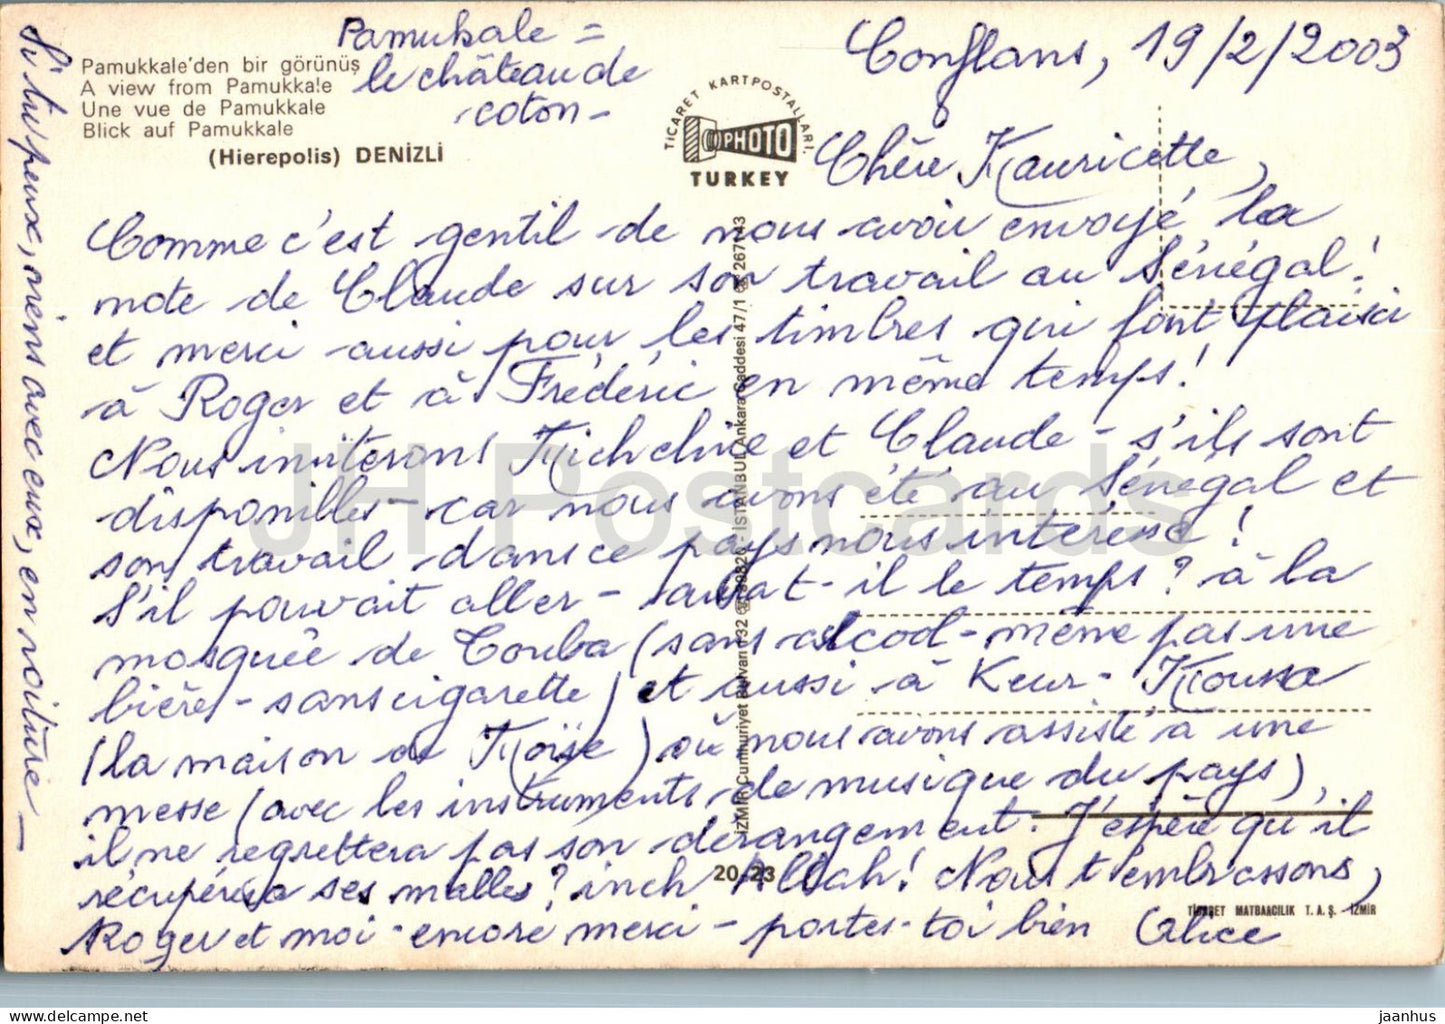 Pamukale =
le château de
coton -
Conflans, 19/2/2003
Pamukkale'den bir görünüş
A view from Pamukkale
Une vue de Pamukkale
Blick auf Pamukkale
(Hierepolis) DENİZLİ
TİCARET KARTPOSTALLARI.
PHOTO
TURKEY
Chère Mauricette,
Comme c'est gentil de nous avoir envoyé la
note de Claude sur son travail au Sénégal!
et merci aussi pour les timbres qui font plaisir
à Roger et à Frédéric en même temps!
Nous inviterons Micheline et Claude - s'ils sont
disponibles - car nous avons été au Sénégal et
son travail dans ce pays nous intéresse!
S'il pouvait aller - aurat-il le temps? à la
mosquée de Touba (sans alcool - même pas une
bière - sans cigarette) et aussi à Keur-Moussa
(la maison de Moïse) où nous avons assisté à une
messe (avec les instruments de musique du pays),
il ne regrettera pas son dérangement. J'espère qu'il
récupérera ses malles? inch Allah! Nous t'embrassons,
Roger et moi - encore merci - portes-toi bien Alice
Si tu peux, viens avec eux, en voiture -
İZMİR Cumhuriyet Bulvarı 132 - İSTANBUL Ankara Caddesi 47/1
20-23
TİCARET MATBAACILIK T. A. Ş. - İZMİR
JH Postcards
https://www.delcampe.net
jaanhus